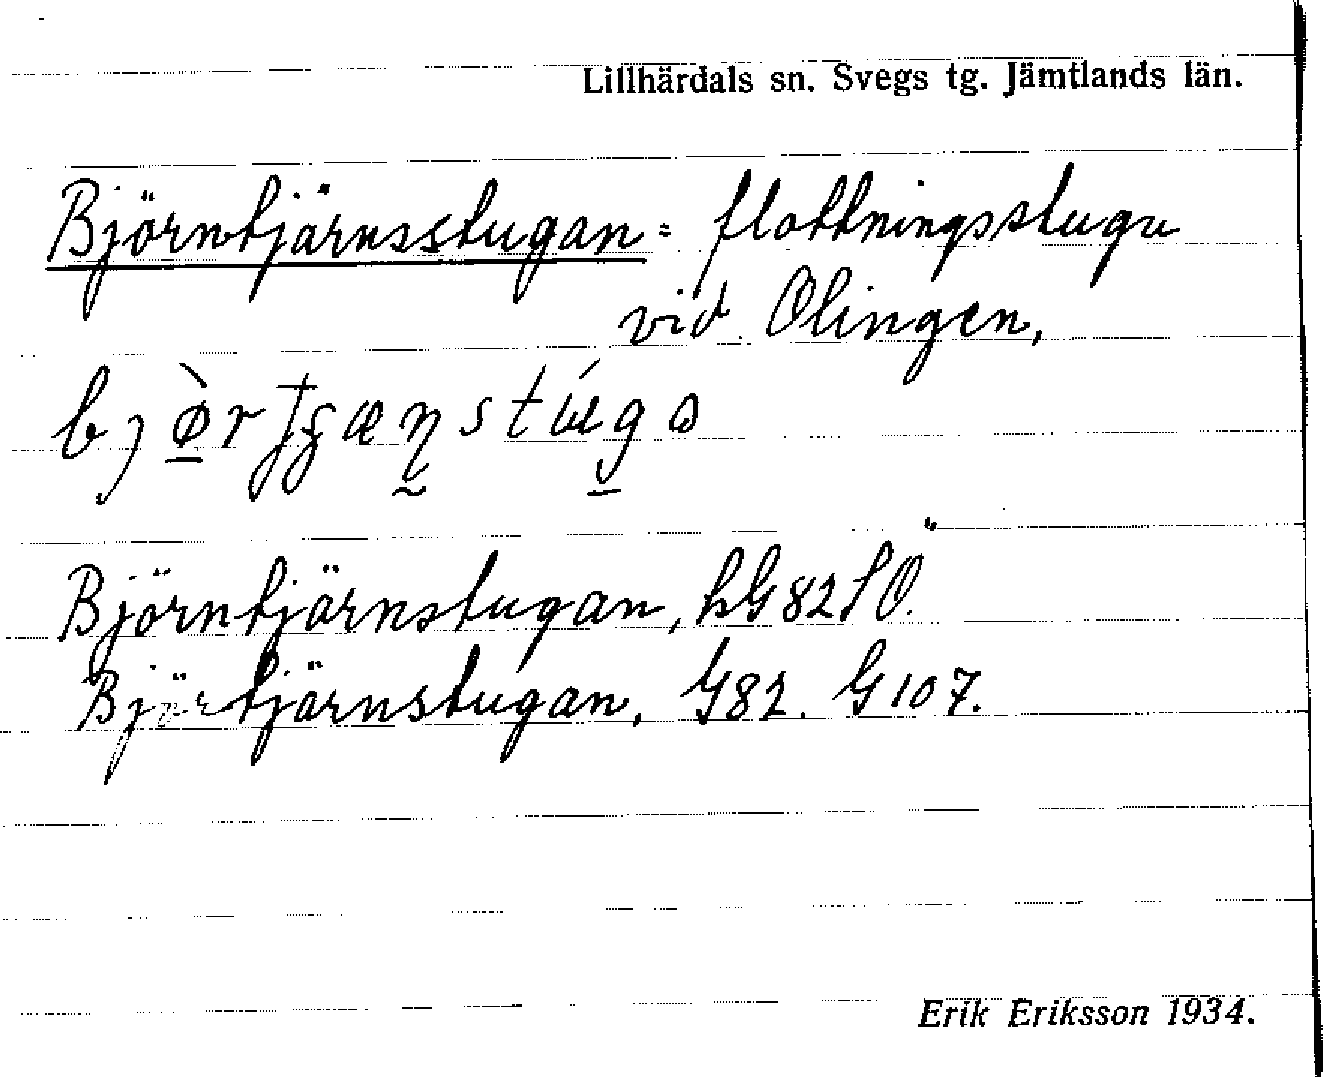 Lillhärdals sn. Svegs tg. Jämtlands län.
Björntjärnsstugan = flottningsstuga
vid Olingen,
Björntjärnstugan, hG82SÖ.
Björtjärnstugan, G82. G107.
Erik Eriksson 1934.